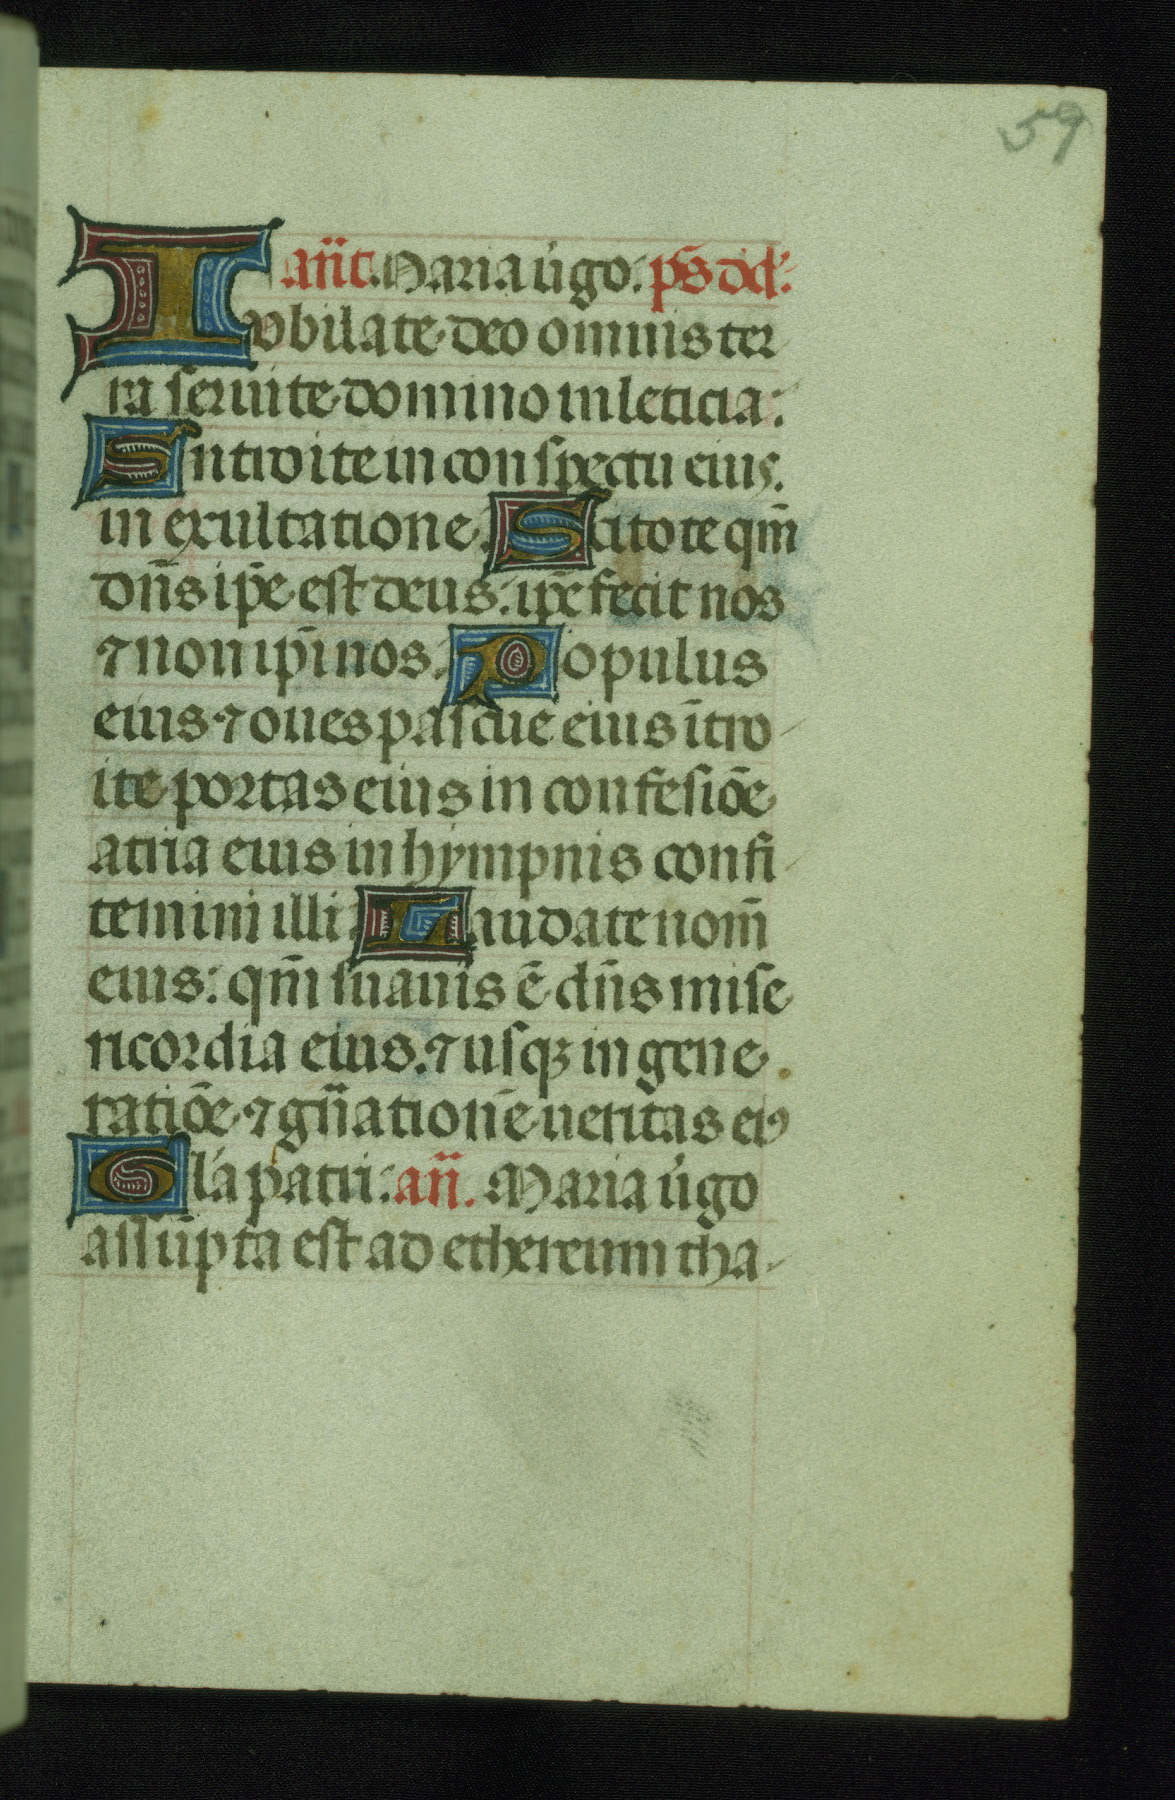 59
ān̄t. Maria ūgo. p̄s dd̄.
Iubilate deo omnis ter
ra seruite domino in leticia:
Sntroite in conspectu eius.
in exultatione. Scitote qm̄
dn̄s ip̄e est deus: ip̄e fecit nos
⁊ non ip̄i nos. Populus
eius ⁊ oues pascue eius ītro
ite portas eius in confesiōe
atria eius in hympnis confi
temini illi Laudate nom̄
eius: qm̄ suauis ē dn̄s mise
ricordia eius. ⁊ usqꝫ in gene
ratiōe ⁊ gn̄ationē ueritas eiꝰ
Gl̄a patri: an̄. Maria ūgo
assūpta est ad ethereum tha